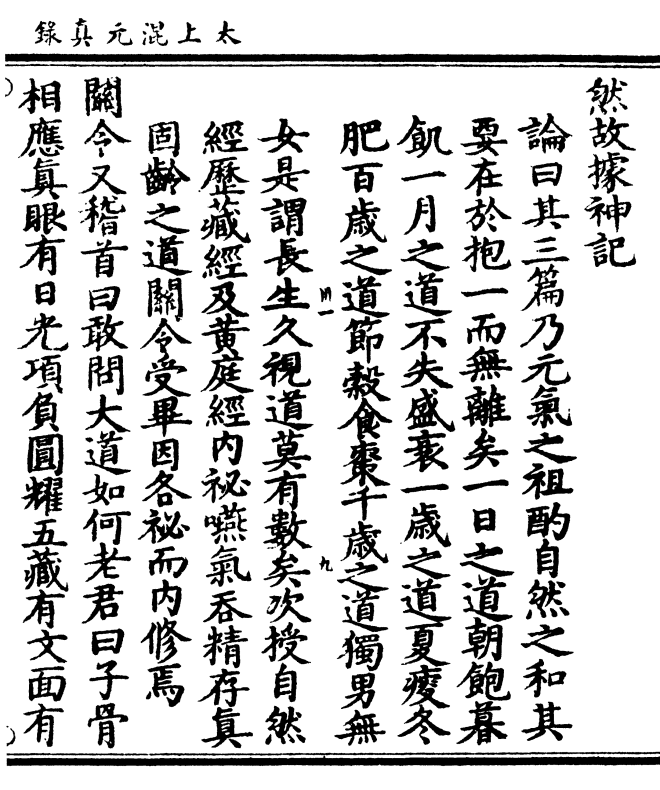 太上混元真錄
然故據神記
論曰其三篇乃元氣之祖酌自然之和其
要在於抱一而無離矣一日之道朝飽暮
飢一月之道不失盛衰一歲之道夏瘦冬
肥百歲之道節穀食棗千歲之道獨男無
四一
九
女是謂長生久視道莫有數矣次授自然
經歷藏經及黄庭經内祕嚥氣吞精存真
固齡之道關令受畢因各祕而内修焉
關令又稽首曰敢問大道如何老君曰子骨
相應真眼有日光項負圓耀五藏有文面有